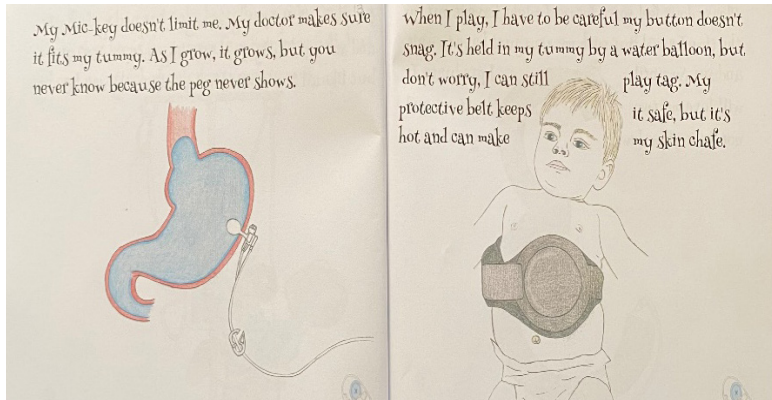 My Mic-key doesn't limit me. My doctor makes sure
it fits my tummy. As I grow, it grows, but you
never know because the peg never shows.
When I play, I have to be careful my button doesn't
snag. It's held in my tummy by a water balloon, but
don't worry, I can still play tag. My
protective belt keeps it safe, but it's
hot and can make my skin chafe.